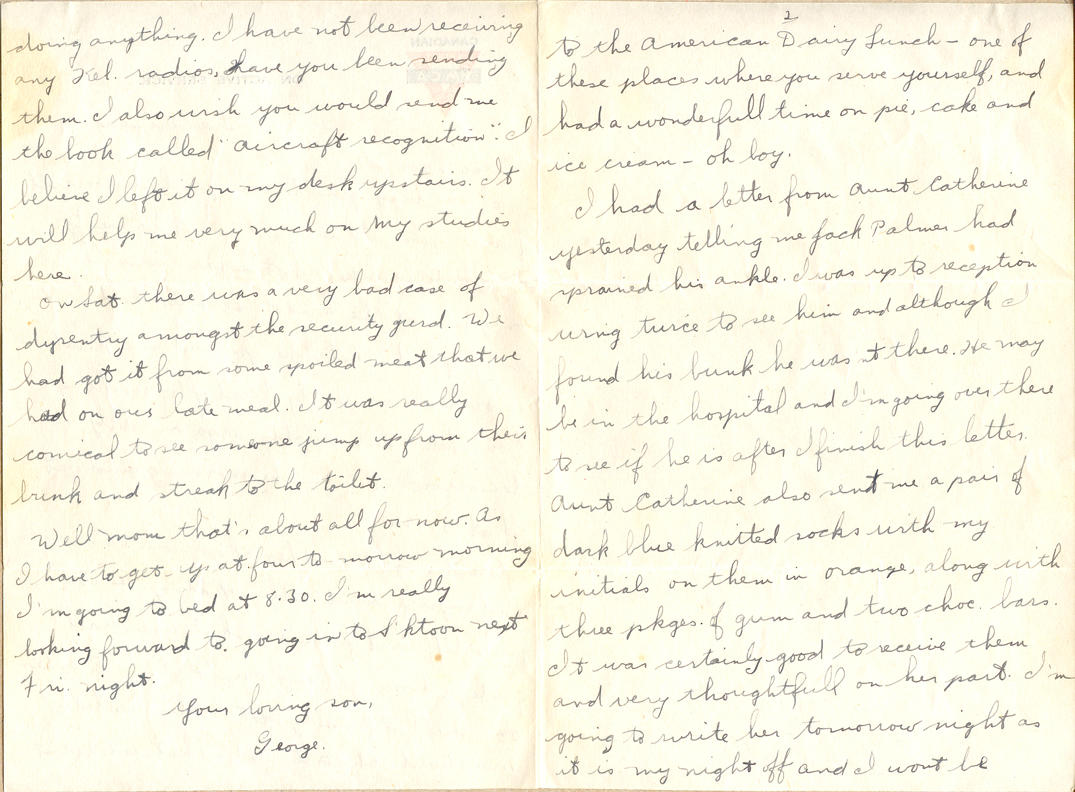 2
to the American Dairy Lunch - one of
these places where you serve yourself, and
had a wonderfull time on pie, cake and
ice cream - oh boy.
I had a letter from Aunt Catherine
yesterday telling me Jack Palmer had
sprained his ankle. I was up to reception
wing twice to see him and although I
found his bunk he was nt there. He may
be in the hospital and I'm going over there
to see if he is after I finish this letter.
Aunt Catherine also sent me a pair of
dark blue knitted socks with my
initials on them in orange, along with
three pkges. of gum and two choc. bars.
It was certainly good to receive them
and very thoughtfull on her part. I'm
going to write her tomorrow night as
it is my night off and I wont be
doing anything. I have not been receiving
any Kel. radios, have you been sending
them. I also wish you would send me
the book called "aircraft recognition". I
believe I left it on my desk upstairs. It
will help me very much on my studies
here.
On Sat. there was a very bad case of
dysentry amongst the security gurd. We
had got it from some spoiled meat that we
had on our late meal. It was really
comical to see someone jump up from their
bunk and streak to the toilet.
Well mom that's about all for now. As
I have to get up at four to-morrow morning
I'm going to bed at 8.30. I'm really
looking forward to going in to S'ktoon next
Fri. night.
Your loving son,
George.